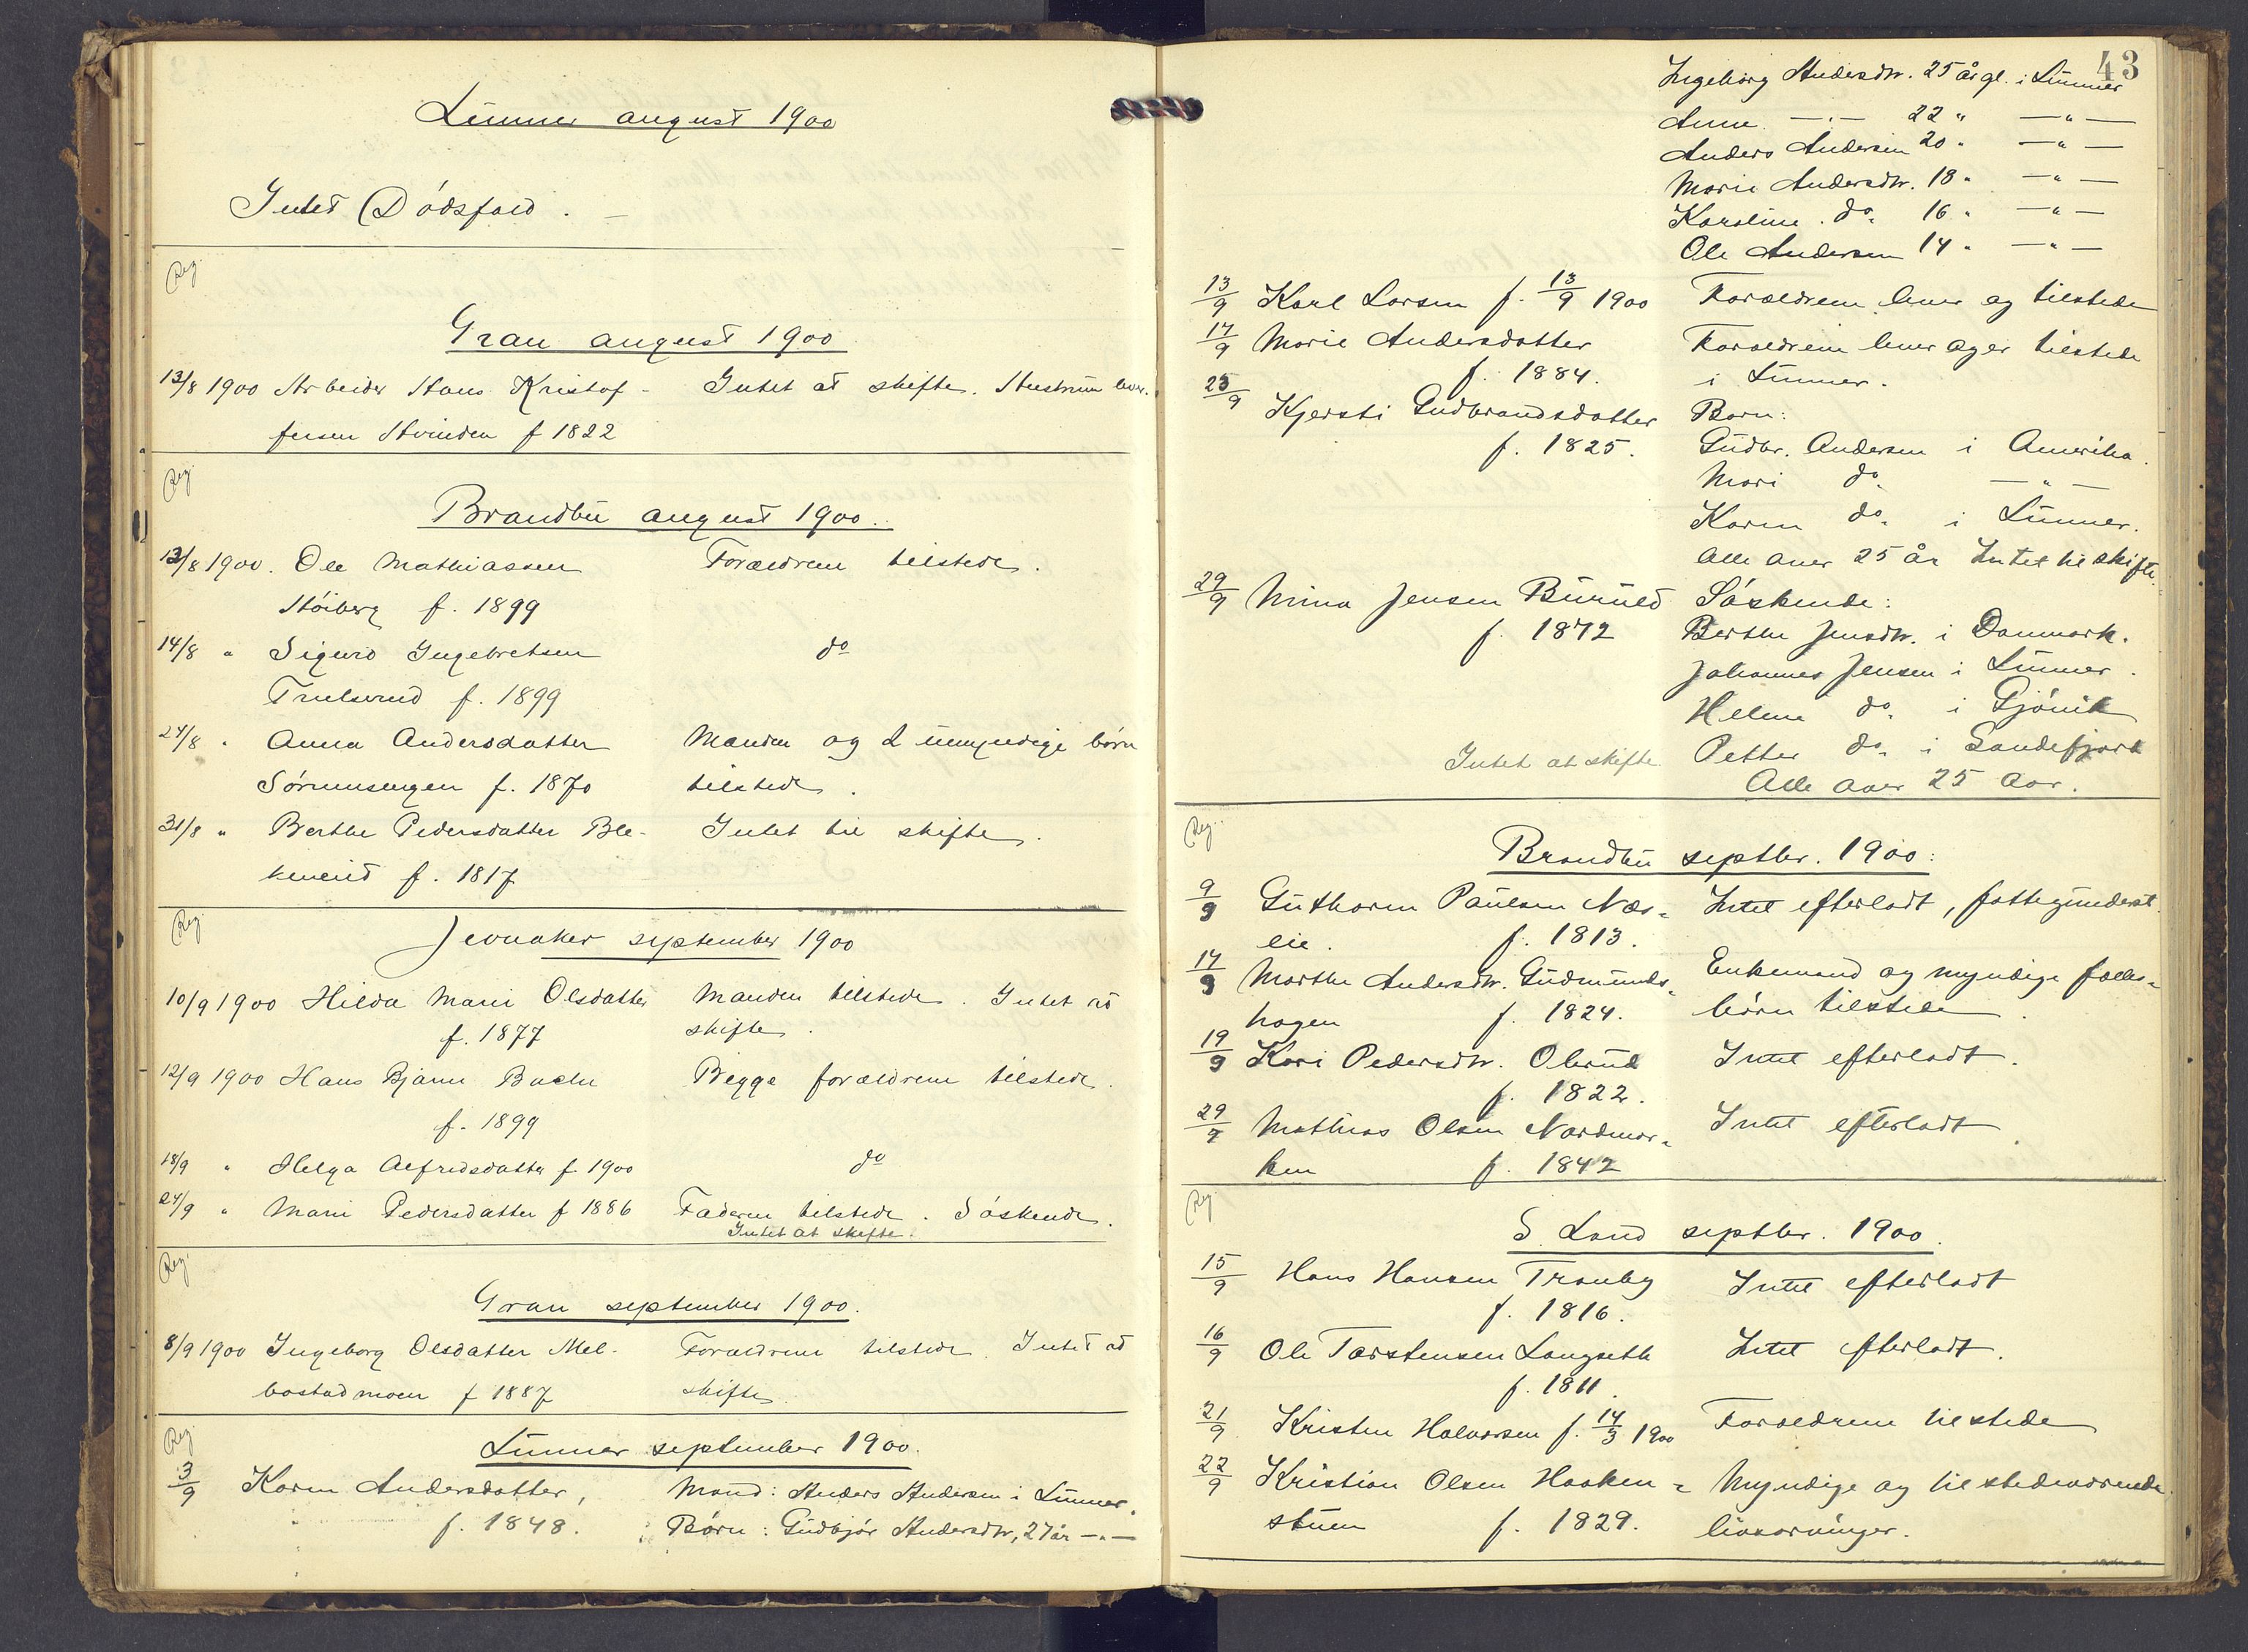 Lunner august 1900
Intet Dödsfald. —
Reg.
Gran august 1900
13/8 1900 Arbeider Hans Kristof- Intet at skifte. Hustruen lever.
fersen Hvinden f 1822
Reg.
Brandbu august 1900.
13/8 1900. Ole Mathiassen Forældrene tilstede.
Höiberg f. 1899
14/8 " Sigurd Ingebretsen do
Trulserud f. 1899
24/8 " Anna Andersdatter Manden og 2 umyndige börn
Sörumsengen f. 1870 tilstede.
31/8 " Berthe Pedersdatter Ble- Intet til skifte.
kenerud f. 1817
Reg.
Jevnaker september 1900
10/9 1900 Hilda Marie Olsdatter Manden tilstede. Intet at
f. 1877 skifte.
12/9 1900 Hans Bjarne Bache Begge forældrene tilstede.
f. 1899
18/9 " Helga Alfredsdatter f. 1900 do
24/9 " Marie Pedersdatter f 1886 Faderen tilstede. Söskende.
Intet at skifte.
Reg.
Gran september 1900.
8/9 1900 Ingeborg Olsdatter Mel- Forældrene tilstede. Intet at
bostadmoen f 1887 skifte.
Reg.
Lunner september 1900.
3/9 Karen Andersdatter, Mand: Anders Andersen i Lunner.
f. 1848. Börn: Gudbjör Andersdtr, 27 år —"—
43
Ingeborg Andersdtr. 25 år gl. i Lunner
Anne —"— 22 " —"—
Anders Andersen 20 " —"—
Marie Andersdtr. 18 " —"—
Karoline do. 16 " —"—
Ole Andersen 14 " —"—
13/9 Karl Larsen f. 13/9 1900 Forældrene lever og tilstede
17/9 Marie Andersdatter Forældrene lever og er tilstede
f. 1884. i Lunner.
25/9 Kjersti Gudbrandsdatter Børn:
f. 1825. Gudbr. Andersen i Amerika.
Mari do. —"—
Karen do. i Lunner.
Alle over 25 år Intet til skifte.
29/9 Mina Jensen Buruld Söskende:
f. 1872 Berthe Jensdtr. i Danmark.
Johannes Jensen i Lunner.
Helene do. i Gjövik
Intet at skifte Petter do. i Sandefjord
Alle over 25 Aar.
Reg.
Brandbu septbr. 1900:
9/9 Guthorm Paulsen Næs- Intet efterladt, fattigunderst.
eie. f. 1813.
17/9 Marthe Andersdtr. Gudmunds- Enkemand og myndige fælles-
hagen f. 1824. börn tilstede.
19/9 Kari Pedersdtr. Olerud Intet efterladt.
f. 1822.
29/9 Mathias Olsen Nordmar- Intet efterladt.
ken f. 1842
Reg.
S. Land septbr. 1900.
15/9 Hans Hansen Tranby Intet efterladt
f. 1816.
16/9 Ole Torstensen Langseth Intet efterladt.
f. 1811.
21/9 Kristen Halvorsen f. 14/3 1900 Forældrene tilstede
22/9 Kristian Olsen Haaken- Myndige og tilstedeværende
stuen f. 1829. livsarvinger.